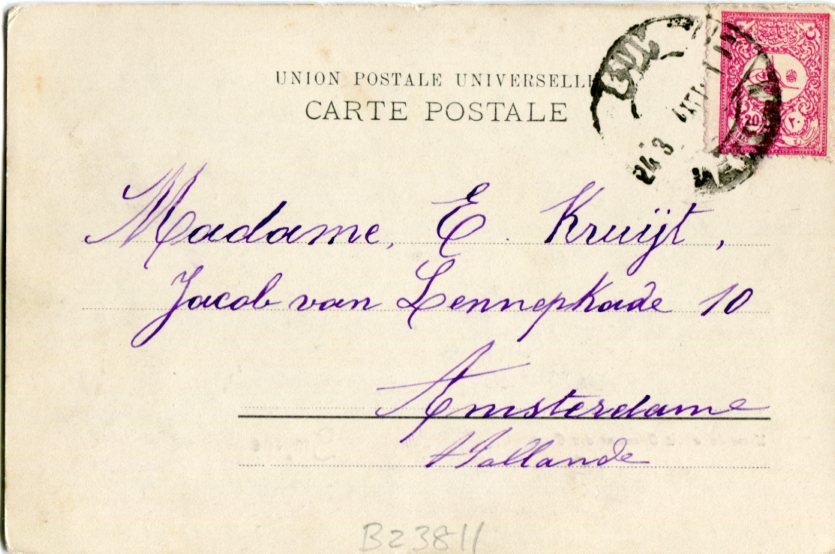 UNION POSTALE UNIVERSELLE
CARTE POSTALE
20
٢٠
24 3
Madame, E. Kruijt,
Jacob van Lennepkade 10
Amsterdame
Hollande
B23811